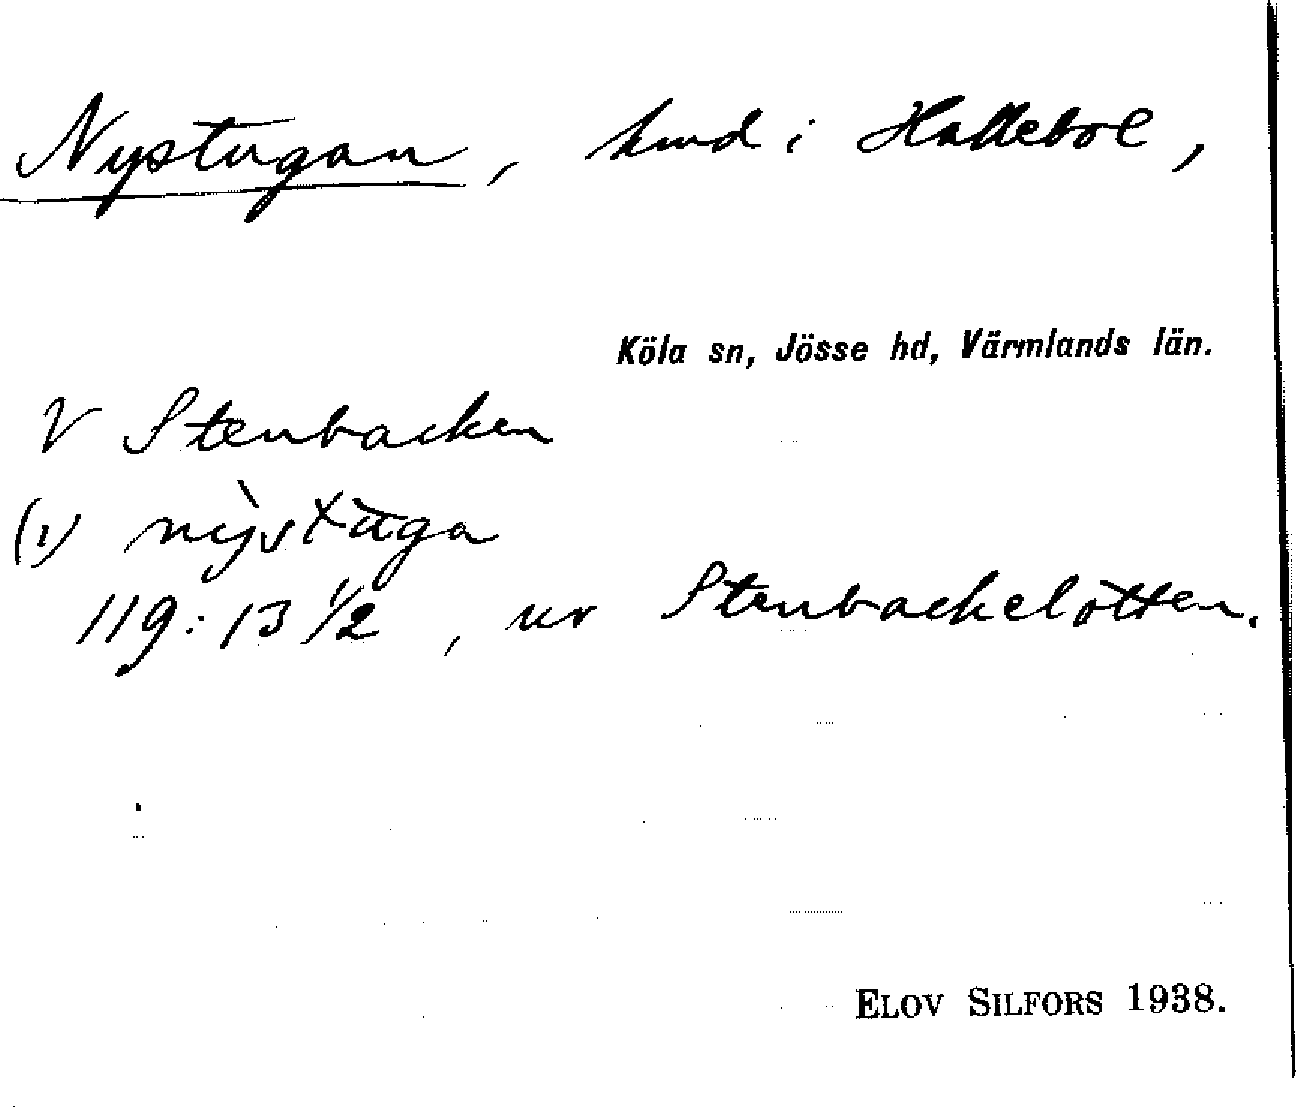 Nystugan, hmd i Hallebol,
Köla sn, Jösse hd, Värmlands län.
V Stenbacken
(1) nỳstùga
119:13 1/2, ur Stenbackelotten.
ELOV SILFORS 1938.